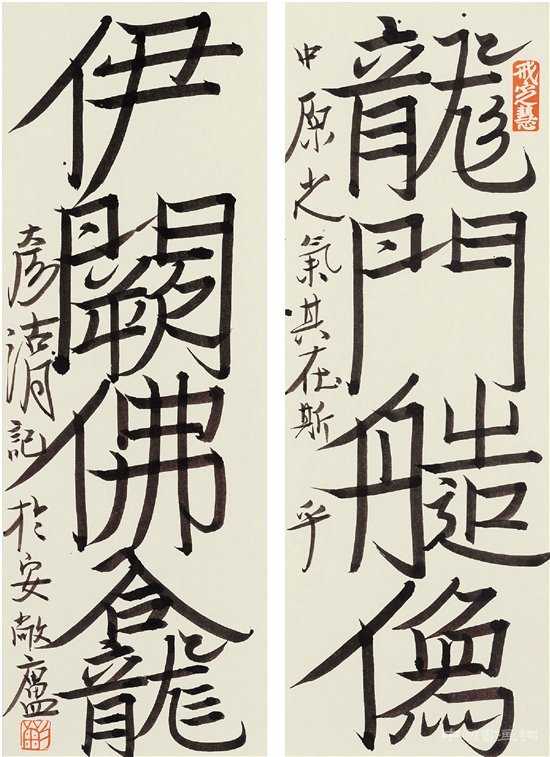 戒定慧
龍門艁像
中原之氣其在斯乎
伊闕佛龕
彥湖記於安敞廬